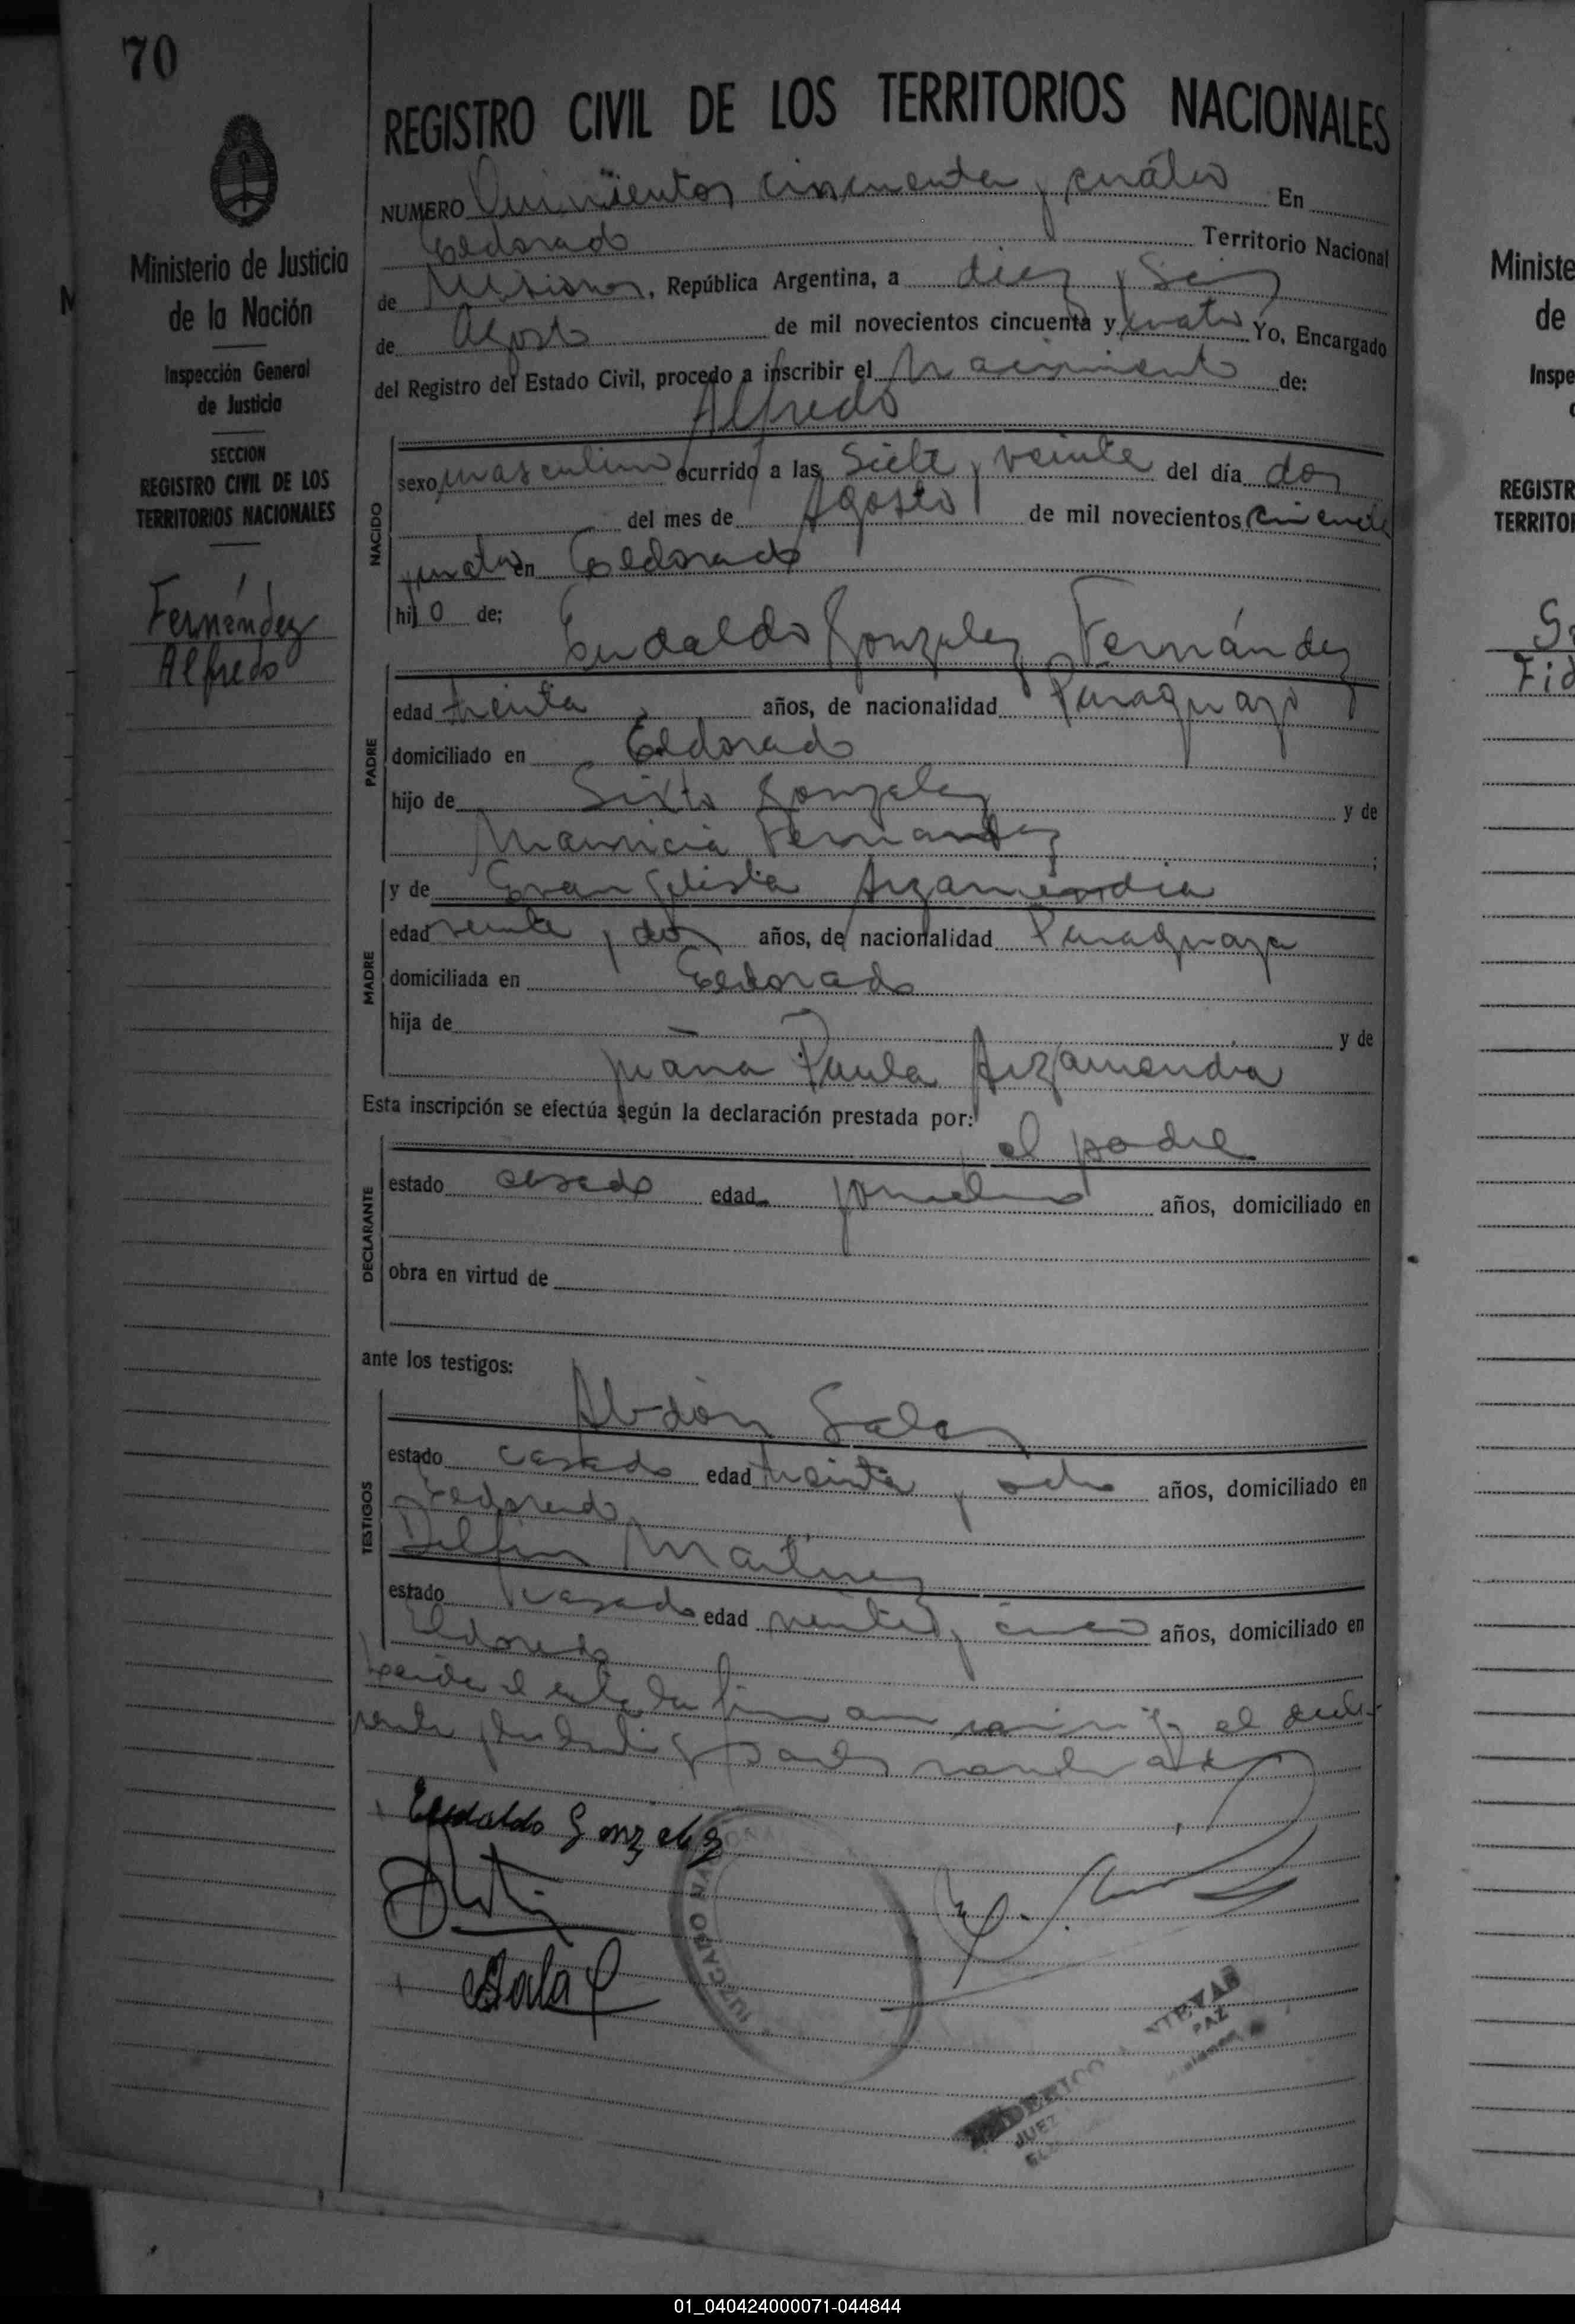 70
REGISTRO CIVIL DE LOS TERRITORIOS NACIONALES
Ministerio de Justicia
de la Nación
Inspección General
de Justicia
SECCION
REGISTRO CIVIL DE LOS
TERRITORIOS NACIONALES
Fernández
Alfredo
NUMERO Quinientos cincuenta y cuatro En
Eldorado Territorio Nacional
de Misiones, República Argentina, a diez y Seis
de Agosto de mil novecientos cincuenta y cuatro Yo, Encargado
del Registro del Estado Civil, procedo a inscribir el nacimiento de:
Alfredo
NACIDO
sexo masculino ocurrido a las Siete y veinte del día dos
del mes de Agosto de mil novecientos
en Eldorado
hijo de:
Eudaldo Gonzalez Fernández
PADRE
edad treinta años, de nacionalidad Paraguayo
domiciliado en Eldorado
hijo de Sixto Gonzalez y de
Mauricia Fernandez ;
y de Evangelista Arzamendia
MADRE
edad veinte y dos años, de nacionalidad Paraguaya
domiciliada en Eldorado
hija de — y de
Juana Paula Arzamendia
Esta inscripción se efectúa según la declaración prestada por:
el padre
DECLARANTE
estado casado edad años, domiciliado en
obra en virtud de
ante los testigos:
TESTIGOS
Abdón Salas
estado casado edad treinta y ocho años, domiciliado en
Eldorado
Delfin Martinez
estado casado edad veinte y cinco años, domiciliado en
Eldorado
Leida el acta la firman conmigo el
Eudaldo Gonzalez
JUZGADO NA
PAZ
JUEZ
Ministe
de
Inspe
REGISTR
TERRITO
01_040424000071-044844